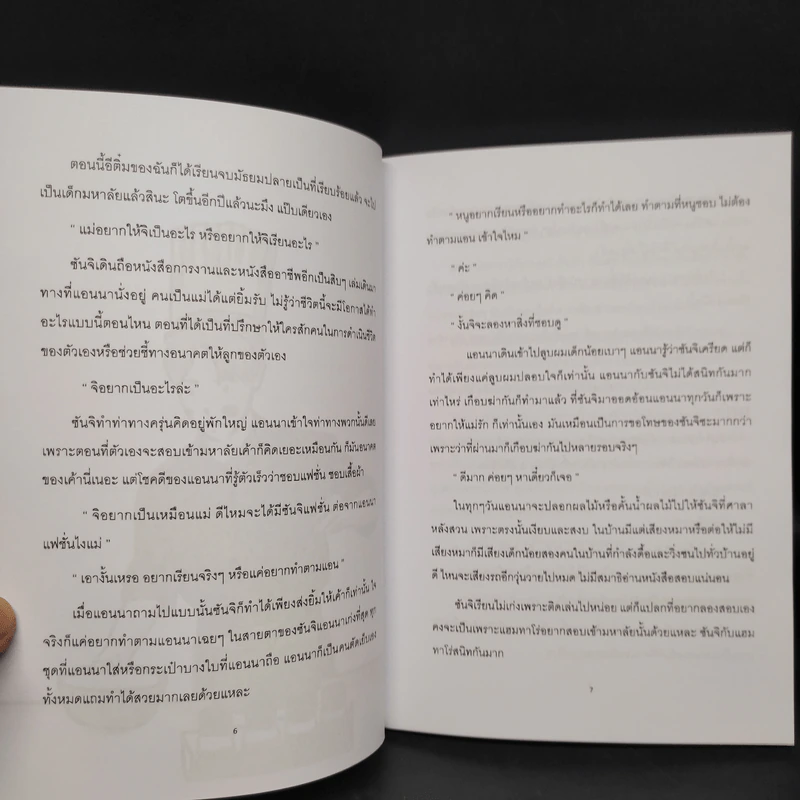 ตอนนี้อีติ๋มของฉันก็ได้เรียนจบมัธยมปลายเป็นที่เรียบร้อยแล้ว จะไป
เป็นเด็กมหาลัยแล้วสินะ โตขึ้นอีกปีแล้วนะมึง แป๊บเดียวเอง
" แม่อยากให้จิเป็นอะไร หรืออยากให้จิเรียนอะไร "
ซันจิเดินถือหนังสือการงานและหนังสืออาชีพอีกเป็นสิบๆ เล่มเดินมา
ทางที่แอนนานั่งอยู่ คนเป็นแม่ได้แต่ยิ้มรับ ไม่รู้ว่าชีวิตนี้จะมีโอกาสได้ทำ
อะไรแบบนี้ตอนไหน ตอนที่ได้เป็นที่ปรึกษาให้ใครสักคนในการดำเนินชีวิต
ของตัวเองหรือช่วยชี้ทางอนาคตให้ลูกของตัวเอง
" จิอยากเป็นอะไรล่ะ "
ซันจิทำท่าทางครุ่นคิดอยู่พักใหญ่ แอนนาเข้าใจท่าทางพวกนั้นดีเลย
เพราะตอนที่ตัวเองจะสอบเข้ามหาลัยเค้าก็คิดเยอะเหมือนกัน ก็มันอนาคต
ของเค้านี่เนอะ แต่โชคดีของแอนนาที่รู้ตัวเร็วว่าชอบแฟชั่น ชอบเสื้อผ้า
" จิอยากเป็นเหมือนแม่ ดีไหมจะได้มีซันจิแฟชั่น ต่อจากแอนนา
แฟชั่นไงแม่ "
" เอางั้นเหรอ อยากเรียนจริงๆ หรือแค่อยากทำตามแอน "
เมื่อแอนนาถามไปแบบนั้นซันจิก็ทำได้เพียงส่งยิ้มให้เค้าก็เท่านั้น ใจ
จริงก็แค่อยากทำตามแอนนาเฉยๆ ในสายตาของซันจิแอนนาเก่งที่สุด ทุก
ชุดที่แอนนาใส่หรือกระเป๋าบางใบที่แอนนาถือ แอนนาก็เป็นคนตัดเย็บเอง
ทั้งหมดแถมทำได้สวยมากเลยด้วยแหละ
6
" หนูอยากเรียนหรืออยากทำอะไรก็ทำได้เลย ทำตามที่หนูชอบ ไม่ต้อง
ทำตามแอน เข้าใจไหม "
" ค่ะ "
" ค่อยๆ คิด "
" งั้นจิจะลองหาสิ่งที่ชอบดู "
แอนนาเดินเข้าไปลูบผมเด็กน้อยเบาๆ แอนนารู้ว่าซันจิเครียด แต่ก็
ทำได้เพียงแค่ลูบผมปลอบใจก็เท่านั้น แอนนากับซันจิไม่ได้สนิทกันมาก
เท่าไหร่ เกือบฆ่ากันก็ทำมาแล้ว ที่ซันจิมาออดอ้อนแอนนาทุกวันก็เพราะ
อยากให้แม่รัก ก็เท่านั้นเอง มันเหมือนเป็นการขอโทษของซันจิซะมากกว่า
เพราะว่าที่ผ่านมาก็เกือบฆ่ากันไปหลายรอบจริงๆ
" ดีมาก ค่อยๆ หาเดี๋ยวก็เจอ "
ในทุกๆวันแอนนาจะปลอกผลไม้หรือคั้นน้ำผลไม้ไปให้ซันจิที่ศาลา
หลังสวน เพราะตรงนั้นเงียบและสงบ ในบ้านมีแต่เสียงหมาหรือต่อให้ไม่มี
เสียงหมาก็มีเสียงเด็กน้อยสองคนในบ้านที่กำลังดื้อและวิ่งซนไปทั่วบ้านอยู่
ดี ไหนจะเสียงรถอีกวุ่นวายไปหมด ไม่มีสมาธิอ่านหนังสือสอบแน่นอน
ซันจิเรียนไม่เก่งเพราะติดเล่นไปหน่อย แต่ก็แปลกที่อยากลองสอบเอง
คงจะเป็นเพราะแฮมทาโร่อยากสอบเข้ามหาลัยนั้นด้วยแหละ ซันจิกับแฮม
ทาโร่สนิทกันมาก
7